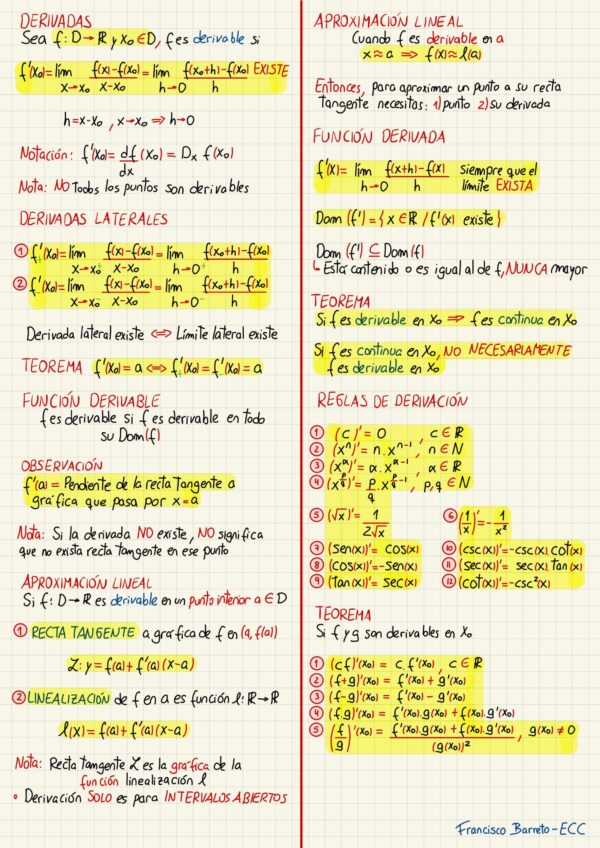 DERIVADAS
Sea f: D→ℝ y x₀ ∈ D, f es derivable si
f'(x₀) = lím x→x₀ (f(x)-f(x₀))/(x-x₀) = lím h→0 (f(x₀+h)-f(x₀))/h EXISTE
h=x-x₀ , x→x₀ ⇒ h→0
Notación: f'(x₀) = df/dx (x₀) = Dₓ f(x₀)
Nota: NO todos los puntos son derivables
DERIVADAS LATERALES
① f'₊(x₀) = lím x→x₀⁺ (f(x)-f(x₀))/(x-x₀) = lím h→0⁺ (f(x₀+h)-f(x₀))/h
② f'₋(x₀) = lím x→x₀⁻ (f(x)-f(x₀))/(x-x₀) = lím h→0⁻ (f(x₀+h)-f(x₀))/h
Derivada lateral existe ⟺ Límite lateral existe
TEOREMA f'(x₀) = a ⟺ f'₊(x₀) = f'₋(x₀) = a
FUNCIÓN DERIVABLE
f es derivable si f es derivable en todo
su Dom(f)
OBSERVACIÓN
f'(a) = Pendiente de la recta tangente a
gráfica que pasa por x=a
Nota: Si la derivada NO existe, NO significa
que no exista recta tangente en ese punto
APROXIMACIÓN LINEAL
Si f: D→ℝ es derivable en un punto interior a ∈ D
① RECTA TANGENTE a gráfica de f en (a, f(a))
ℒ: y = f(a) + f'(a)(x-a)
② LINEALIZACIÓN de f en a es función ℓ: ℝ→ℝ
ℓ(x) = f(a) + f'(a)(x-a)
Nota: Recta tangente ℒ es la gráfica de la
función linealización ℓ
• Derivación SOLO es para INTERVALOS ABIERTOS
APROXIMACIÓN LINEAL
Cuando f es derivable en a
x≈a ⇒ f(x)≈ℓ(a)
Entonces, para aproximar un punto a su recta
tangente necesitas: 1) punto 2) su derivada
FUNCIÓN DERIVADA
f'(x) = lím h→0 (f(x+h)-f(x))/h siempre que el
límite EXISTA
Dom (f') = { x ∈ ℝ / f'(x) existe }
Dom (f') ⊆ Dom (f)
↳ Esta contenido o es igual al de f, NUNCA mayor
TEOREMA
Si f es derivable en x₀ ⇒ f es continua en x₀
Si f es continua en x₀, NO NECESARIAMENTE
f es derivable en x₀
REGLAS DE DERIVACIÓN
① (c)' = 0 , c ∈ ℝ
② (xⁿ)' = n.xⁿ⁻¹ , n ∈ N
③ (x^α)' = α.x^(α-1) , α ∈ ℝ
④ (x^(p/q))' = p/q.x^(p/q-1) , p,q ∈ N
⑤ (√x)' = 1/(2√x) ⑥ (1/x)' = -1/x²
⑦ (sen(x))' = cos(x) ⑩ (csc(x))' = -csc(x).cot(x)
⑧ (cos(x))' = -sen(x) ⑪ (sec(x))' = sec(x).tan(x)
⑨ (tan(x))' = sec(x) ⑫ (cot(x))' = -csc²(x)
TEOREMA
Si f y g son derivables en x₀
① (cf)'(x₀) = c.f'(x₀) , c ∈ ℝ
② (f+g)'(x₀) = f'(x₀) + g'(x₀)
③ (f-g)'(x₀) = f'(x₀) - g'(x₀)
④ (f.g)'(x₀) = f'(x₀).g(x₀) + f(x₀).g'(x₀)
⑤ (f/g)'(x₀) = (f'(x₀).g(x₀) + f(x₀).g'(x₀))/(g(x₀))² , g(x₀) ≠ 0
Francisco Barreto - ECC